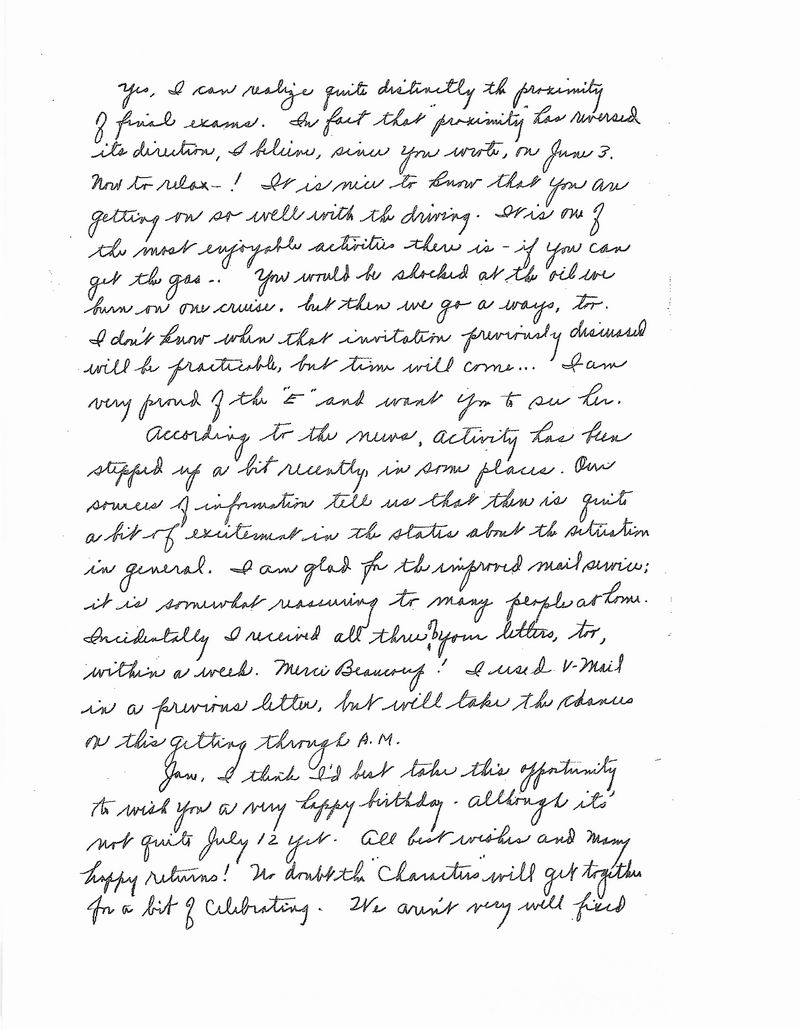 Yes, I can realize quite distinctly th proximity
of final exams. In fact that "proximity" has reversed
its direction, I believe, since you wrote, on June 3.
Now to relax- ! It is nice to know that you are
getting on so well with the driving. It is one of
the most enjoyable activities there is - if you can
get the gas.. You would be shocked at the oil we
burn on one cruise. but then we go a ways, too.
I don't know when that invitation previously discussed
will be practicable, but time will come... I am
very proud of the "E" and want you to see her.
According to the news, activity has been
stepped up a bit recently, in some places. Our
sources of information tell us that there is quite
a bit of excitement in the states about the situation
in general. I am glad for the improved mail service;
it is somewhat reassuring to many people at home.
Incidentally I received all three of your letters, too,
within a week. Merci Beaucoup! I used V-Mail
in a previous letter, but will take the chances
on this getting through A.M.
Jane, I think I'd best take this opportunity
to wish you a very happy birthday - although it's
not quite July 12 yet. All best wishes and many
happy returns! No doubt the "Characters" will get together
for a bit of celebrating. We aren't very well fixed